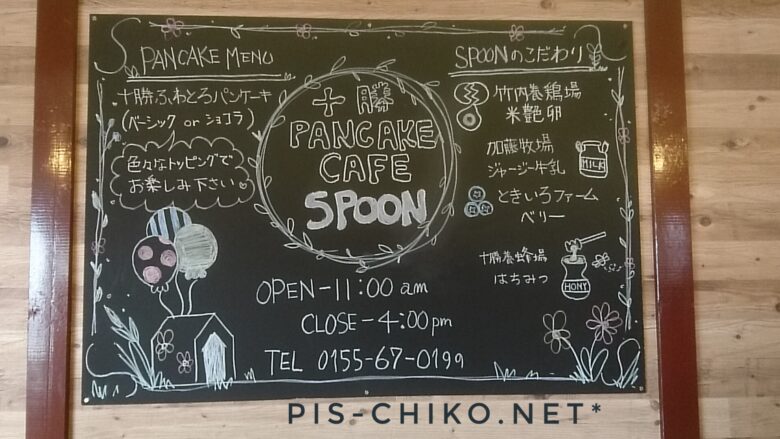 PANCAKE MENU
十勝ふわとろパンケーキ
(ベーシック or ショコラ)
色々なトッピングで
お楽しみ下さい
十勝
PANCAKE
CAFE
SPOON
OPEN-11:00am
CLOSE-4:00pm
TEL 0155-67-0199
SPOONのこだわり
竹内養鶏場
米艶卵
加藤牧場
ジャージー牛乳
MILK
ときいろファーム
ベリー
十勝養蜂場
はちみつ
HONY
PIS-CHIKO.NET*